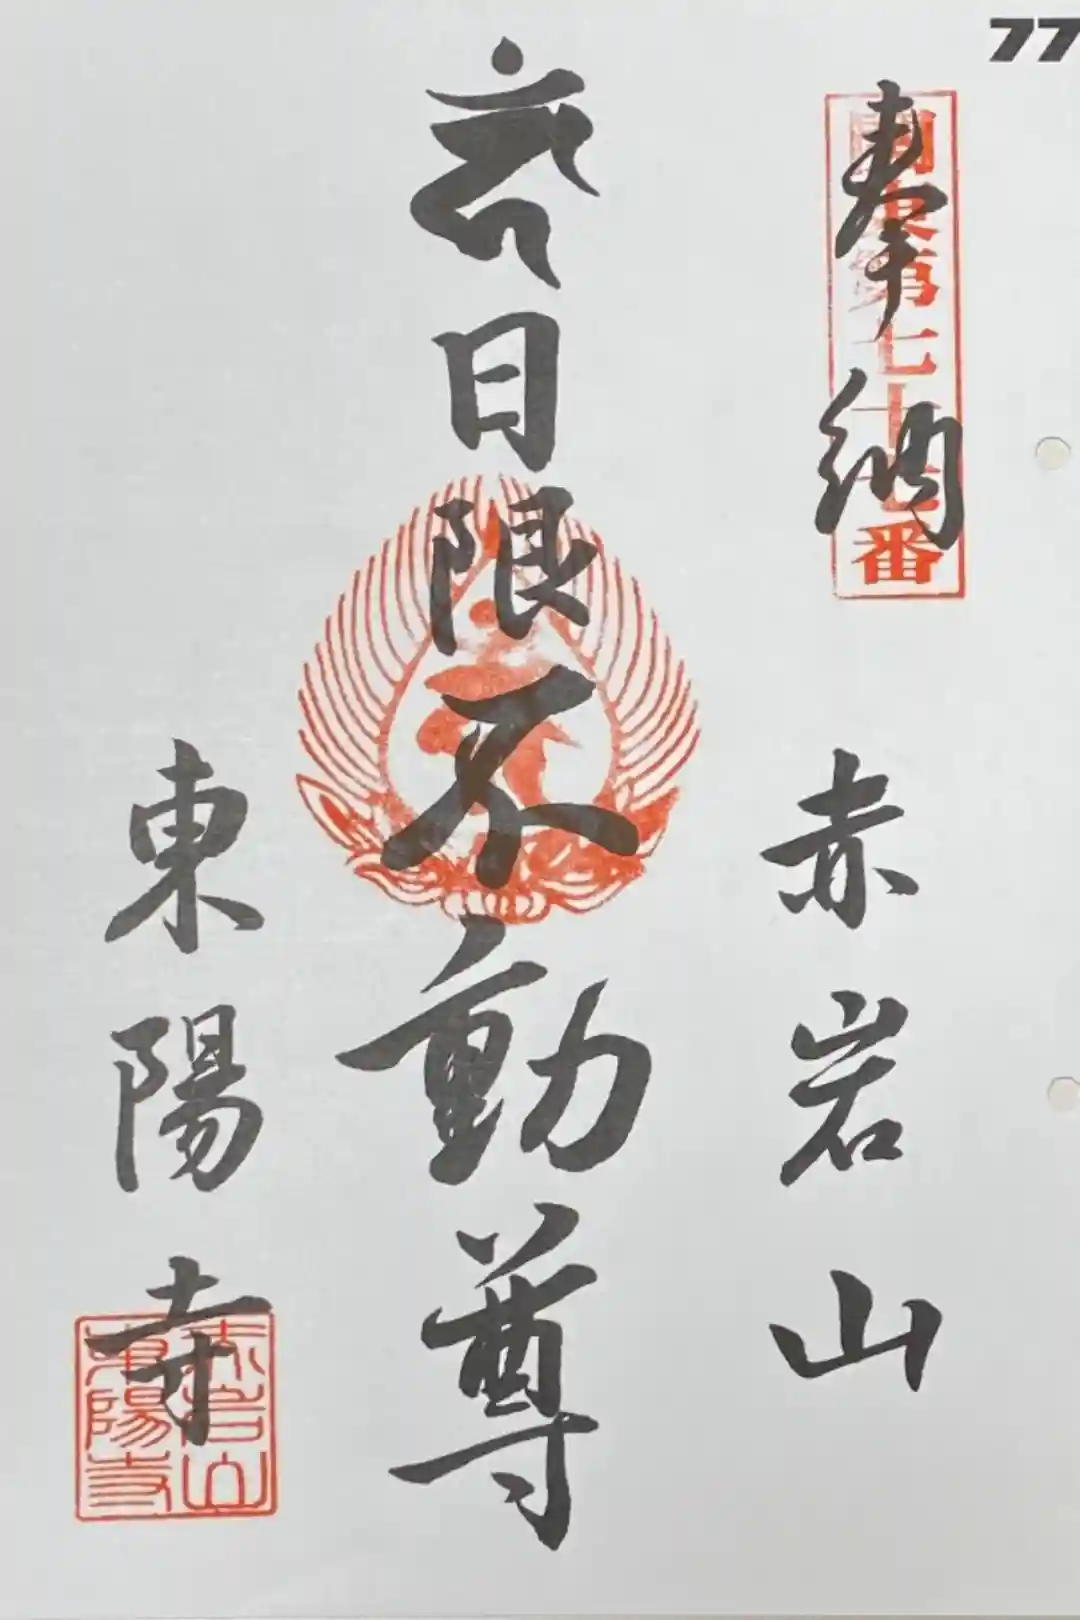 77
奉納
関東第七十七番
赤岩山
日限不動尊
東陽寺
赤岩山
東陽寺